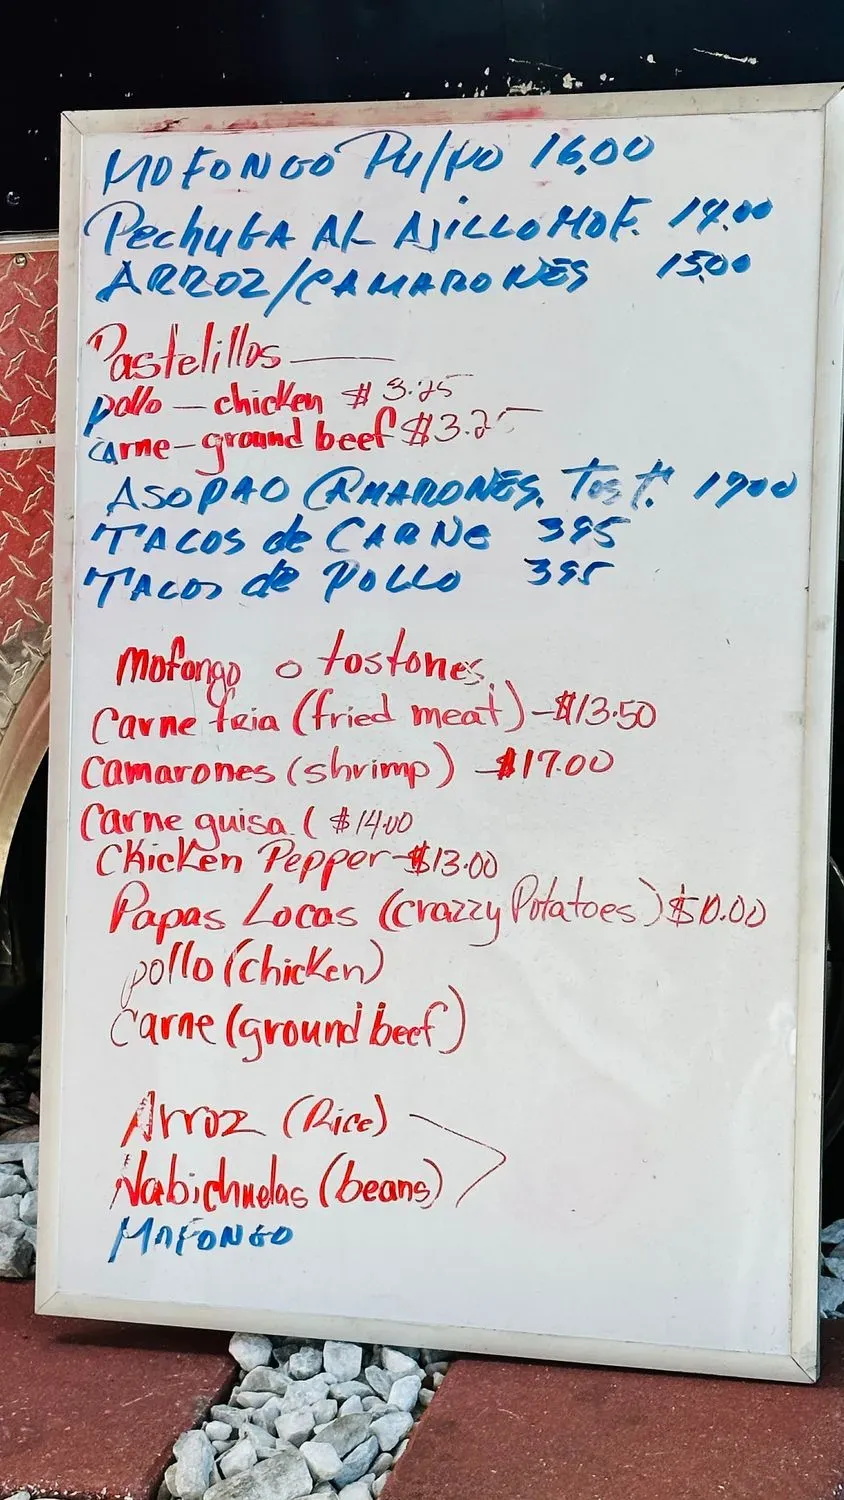 MOFONGO Pulpo 16.00
Pechuga AL AJILLO MOF. 14.00
ARROZ/CAMARONES 15.00
Pastelillos
pollo - chicken $3.25
carne - ground beef $3.25
ASOPAO CAMARONES. Tost.
TACOS de CARNE 395
TACOS de POLLO 395
Mofongo o tostones.
Carne fria (fried meat) - $13.50
Camarones (shrimp) - $17.00
Carne guisa. ( $14.00
Chicken Pepper - $13.00
Papas Locas (crazzy Potatoes) $10.00
pollo (chicken)
Carne (ground beef)
Arroz (Rice)
Habichuelas (beans)
MOFONGO